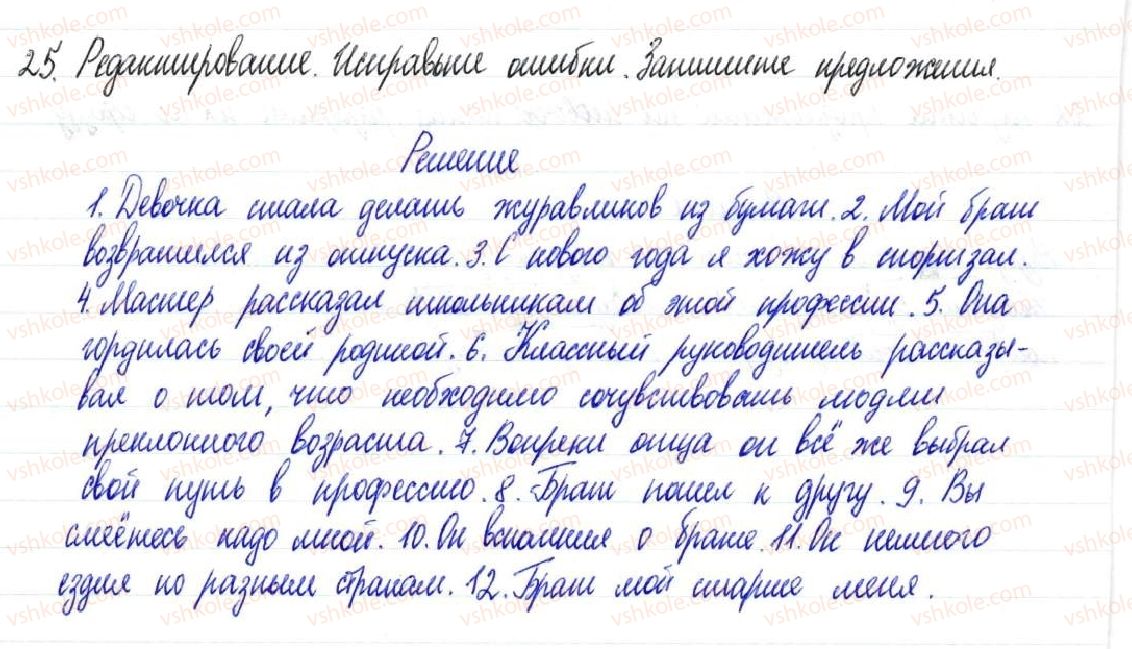 25. Редактирование. Исправьте ошибки. Запишите предложения.
Решение
1. Девочка стала делать журавликов из бумаги. 2. Мой брат
возвратился из отпуска. 3. С нового года я хожу в спортзал.
4. Мастер рассказал школьникам об этой профессии. 5. Она
гордилась своей родиной. 6. Классный руководитель рассказы-
вал о том, что необходимо сочувствовать людям
преклонного возраста. 7. Вопреки отца он всё же выбрал
свой путь в профессию. 8. Брат пошел к другу. 9. Вы
смеётесь надо мной. 10. Он вспомнил о брате. 11. Он немного
ездил по разным странам. 12. Брат мой старше меня.
vshkole.com